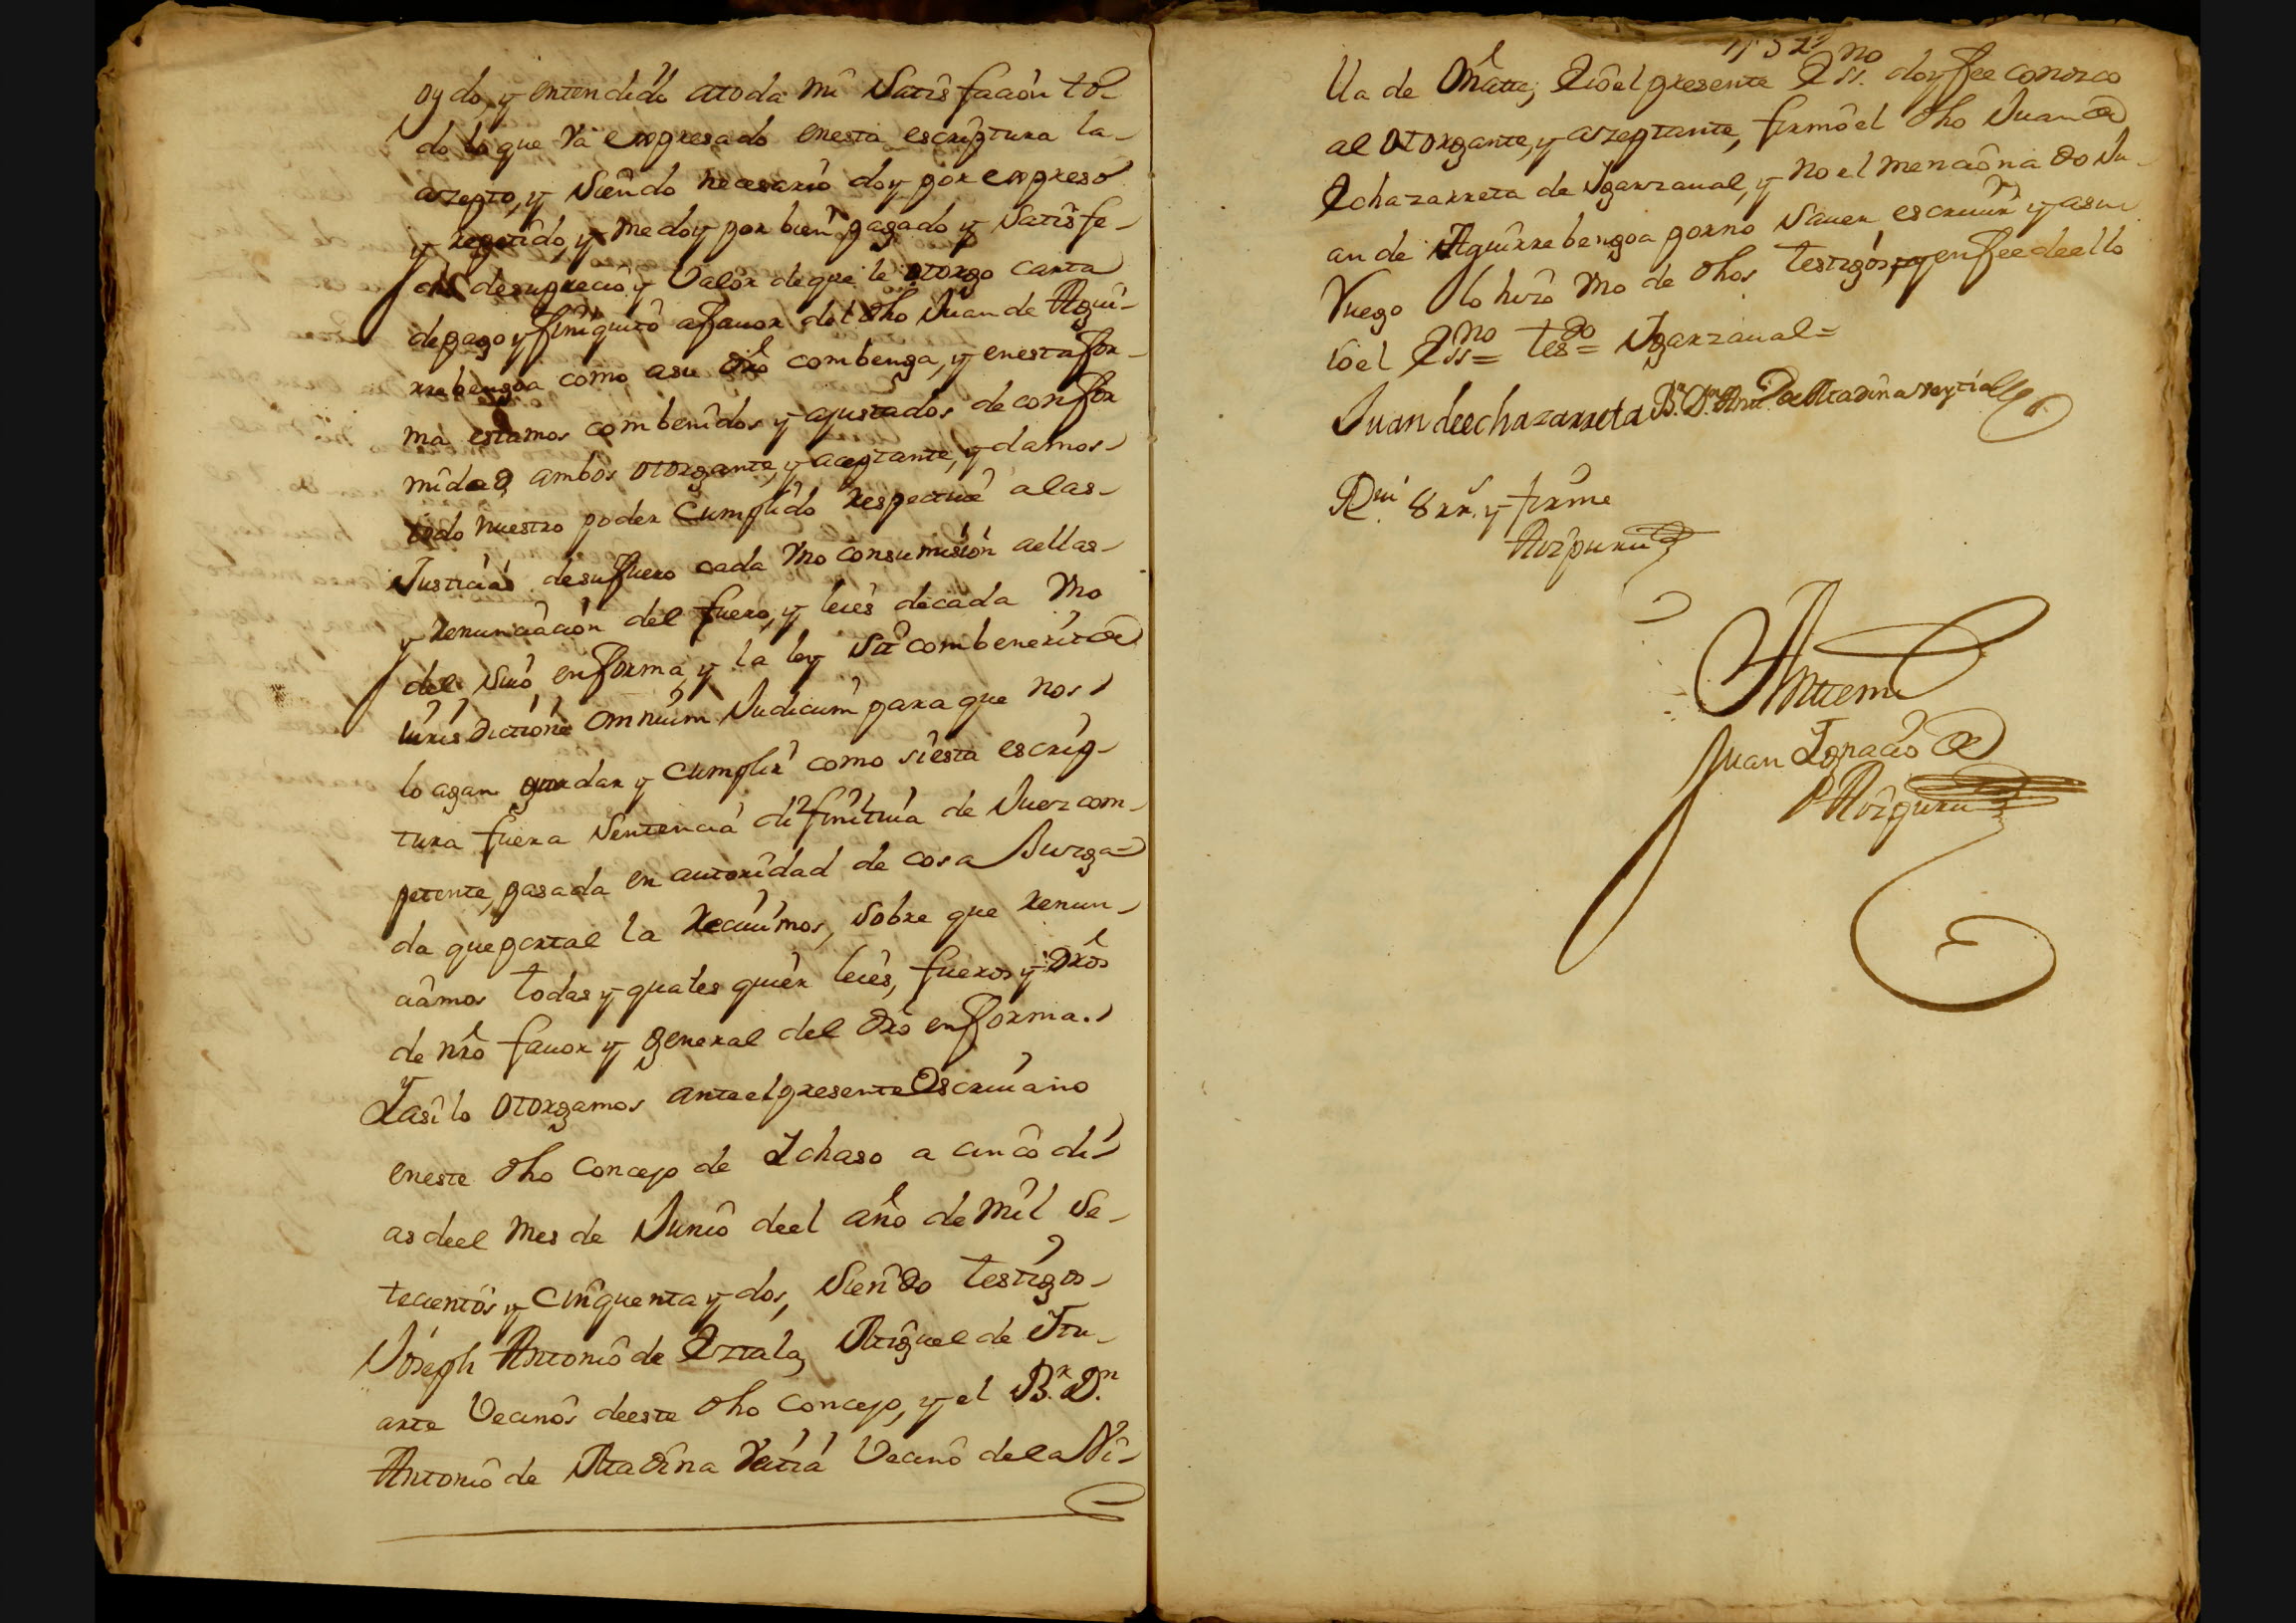 oydo, y entendido atoda mi Satisfacion to-
do lo que va expresado enesta escriptura la-
azepto, y Siendo necesario doy por expreso
y repetido, y me doy por bien pagado y Satisfe-
cho desuprecio y Valor deque le otorgo carta
depago y finiquito afauor del dho Juan de Agui-
rrebengoa como asu dro combenga, y enestafor-
ma estamos combenidos y ajustados de confor
midad ambos otorgante, y aceptante, y damos
todo nuestro poder Cumplido respectiue alas-
Justicias desufuero cada Vno consumision aellas-
y renunciacion del fuero, y leies decada Vno
del Suio enforma, y la ley Sit combenerit de
iurisdictione omnium Judicum para que nos
lo agan guardar y Cumplir como siesta escrip-
tura fuera Sentencia difinitiua de Juez com-
petente, pasada en autoridad de cosa Juzga-
da queportal la reciuimos, Sobre que renun-
ciamos todas y quales quier leies, fueros y dros
de nro fauor y general del dro enforma.
Y asi lo otorgamos anteelpresente Escriuano
eneste dho Concejo de Ichaso a cinco di-
as deel mes de Junio deel año de mil Se-
tecientos y Cinquenta y dos, Siendo testigos
Joseph Antonio de Eztala, Miguel de Itu-
arte Vecinos deeste dho Concejo, y el B.r D.n
Antonio de Madina Veitia Vecino dela Vi-
lla de Oñatte, Eioel presente Ess.no doy fee conozco
al otorgante, y azeptante, firmo el dho Juan de
Echazarreta de Igarzaual, y no el menciona do Ju-
an de Aguirrebengoa porno Sauer escriuir y asu
ruego lo hizo Vno de dhos testigos, y enfee deello
io el Ess.no = tes.do = Igarzaual =
Juan deechazarreta B.r D.n Ant.o de Madinaveytia
R.ui 8 rr.s y firme
Aizpuru
Antemi
Juan Ignacio de
Aizpuru